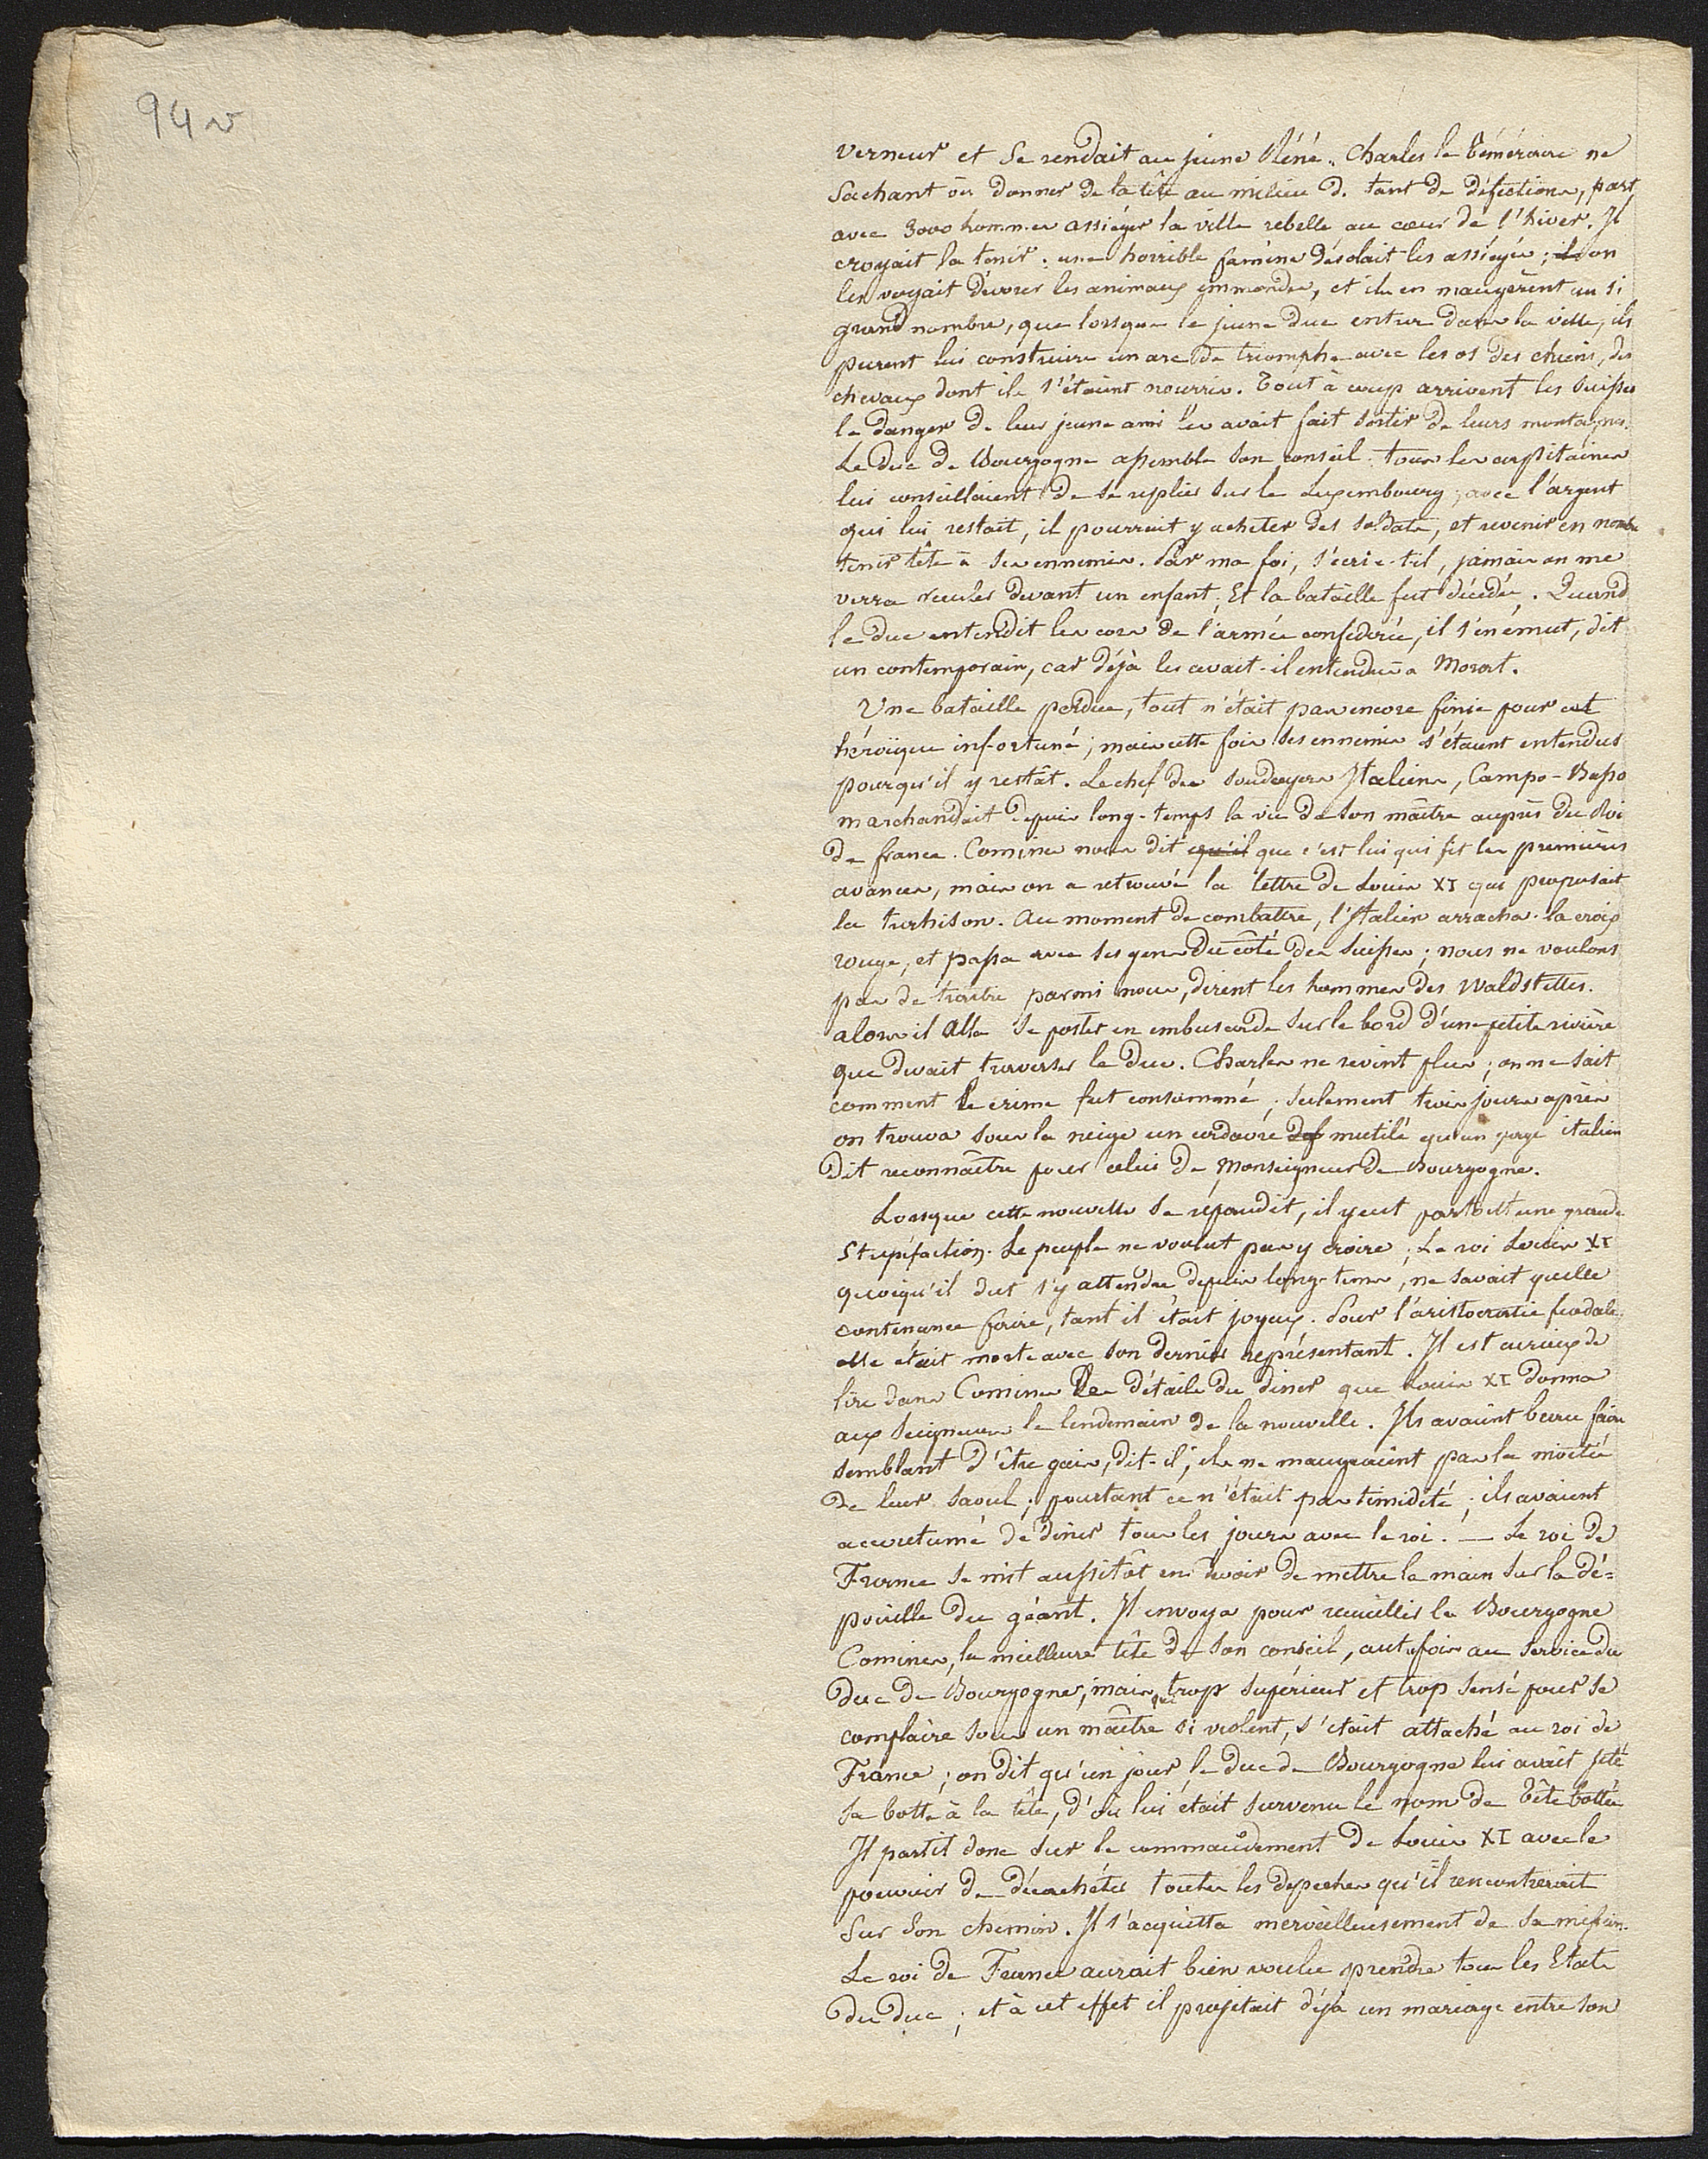 94 v
verneur et se rendait au jeune Réné. Charles le Téméraire ne
sachant où donner de la tête au milieu de tant de défections, part
avec 3000 hommes assiéger la ville rebelle au cœur de l'hiver. Il
croyait la tenir : une horrible famine désolait les assiégés ; il on
les voyait dévorer les animaux immondes, et ils en mangèrent un si
grand nombre, que lorsque le jeune duc entra dans la ville, ils
purent lui construire un arc de triomphe avec les os des chiens, des
chevaux dont ils s'étaient nourris. Tout à coup arrivent les Suisses
le danger de leur jeune ami les avait fait sortir de leurs montagnes.
Le duc de Bourgogne assembla son conseil. tous les capitaines
lui conseillaient de se replier sur le Luxembourg ; avec l'argent
qui lui restait, il pourrait y acheter des soldats, et revenir en nombre
tenir tête à ses ennemis. Par ma foi, s'écrie-t-il, jamais on me
verra reculer devant un enfant. Et la bataille fut décidée. Quand
le duc entendit les cors de l'armée confédérée, il s'en émut, dit
un contemporain, car déjà les avait-il entendus à Morat.
Une bataille perdue, tout n'était pas encore fini pour cet
héroïque infortuné ; mais cette fois ses ennemis s'étaient entendus
pour qu'il y restât. Le chef des soudoyers Italiens, Campo-Basso
marchandait depuis long-temps la vie de son maître auprès du Roi
de france. Comines nous dit qu'il que c'est lui qui fit les premières
avances, mais on a retrouvé la lettre de Louis XI qui proposait
la trahison. Au moment de combattre, l'Italien arracha la croix
rouge, et passa avec ses gens du côté des Suisses ; nous ne voulons
pas de traître parmi nous, dirent les hommes des Waldstettes.
alors il alla se poster en embuscade sur le bord d'une petite rivière
que devait traverser le duc. Charles ne revint plus ; on ne sait
comment le crime fut consommé ; seulement trois jours après
on trouva sous la neige un cadavre def mutilé qu'un page italien
dit reconnaître pour celui de Monseigneur de Bourgogne.
Lorsque cette nouvelle se répandit, il y eut partout une grande
stupéfaction. Le peuple ne voulut pas y croire ; Le roi Louis XI
quoiqu'il dut s'y attendre depuis long-tems, ne savait quelle
contenance faire, tant il était joyeux. Pour l'aristocratie feodale
elle était morte avec son dernier représentant. Il est curieux de
lire dans Comines les détails du diner que Louis XI donna
aux seigneurs le lendemain de la nouvelle. Ils avaient beau faire
semblant d'être gais, dit-il, ils ne mangeaient pas la moitié
de leur saoul ; pourtant ce n'était pas timidité ; ils avaient
accoutumé de diner tous les jours avec le roi. — Le roi de
France se mit aussitôt en devoir de mettre la main sur la dé=
pouille du géant. Il envoya pour recueillir la Bourgogne
Comines, la meilleure tête de son conseil, autrefois au service du
duc de Bourgogne, mais qui trop supérieur et trop sensé pour se
complaire sous un maître si violent, s'était attaché au roi de
France ; on dit qu'un jour le duc de Bourgogne lui avait jeté
sa botte à la tête, d'où lui était survenu le nom de Tête bottée
Il partit donc sur le commandement de Louis XI avec le
pouvoir de décacheter toutes les dépêches qu'il rencontrerait
sur son chemin. Il s'acquitta merveilleusement de sa mission.
Le roi de France aurait bien voulu prendre tous les Etats
du duc ; et à cet effet il projetait déjà un mariage entre son